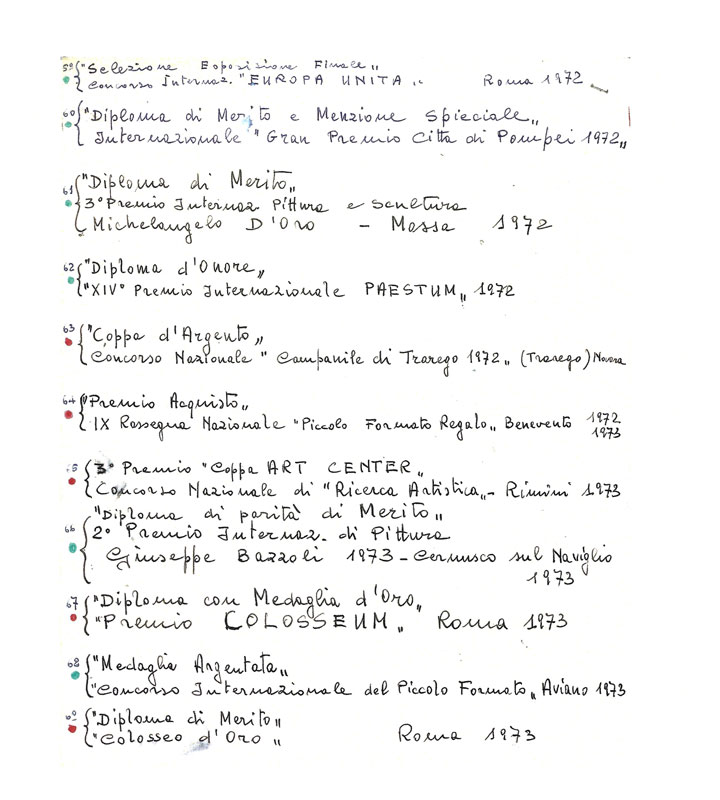 59 "Selezione Esposizione Finale"
Concorso Internaz. "EUROPA UNITA" Roma 1972
60 "Diploma di Merito e Menzione Spieciale"
Internazionale "Gran Premio Città di Pompei 1972"
61 "Diploma di Merito"
3° Premio Internaz Pittura e Scultura
Michelangelo D'Oro - Massa 1972
62 "Diploma d'Onore"
"XIV° Premio Internazionale PAESTUM" 1972
63 "Coppa d'Argento"
Concorso Nazionale "Campanile di Trarego 1972" (Trarego) Novara
64 "Premio Acquisto"
IX Rassegna Nazionale "Piccolo Formato Regalo" Benevento 1972
1973
65 3° Premio "Coppa ART CENTER"
Concorso Nazionale di "Ricerca Artistica" - Rimini 1973
"Diploma di parità di Merito"
66 2° Premio Internaz. di Pittura
Giuseppe Bazzoli 1973 - Cernusco sul Naviglio
1973
67 "Diploma con Medaglia d'Oro"
"Premio COLOSSEUM" Roma 1973
68 "Medaglia Argentata"
"Concorso Internazionale del Piccolo Formato" Aviano 1973
69 "Diploma di Merito"
"Colosseo d'Oro" Roma 1973